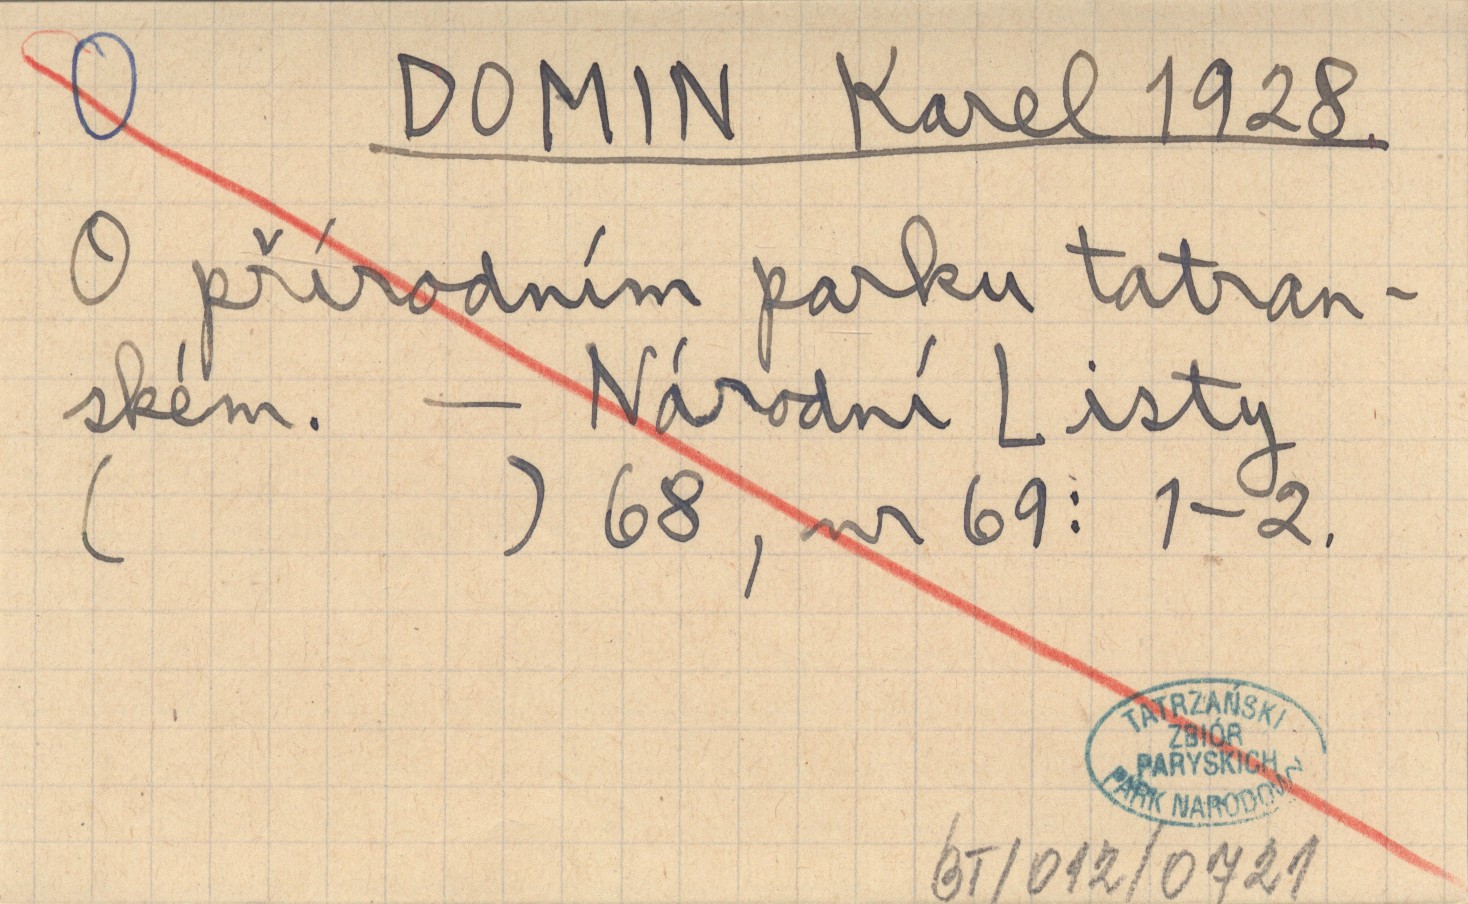 O DOMIN Karel 1928.
O přírodním parku tatran-
ském. — Národní Listy
( ) 68, nr 69: 1-2.
TATRZAŃSKI
ZBIÓR
PARYSKICH
PARK NARODOWY
BT/012/0721